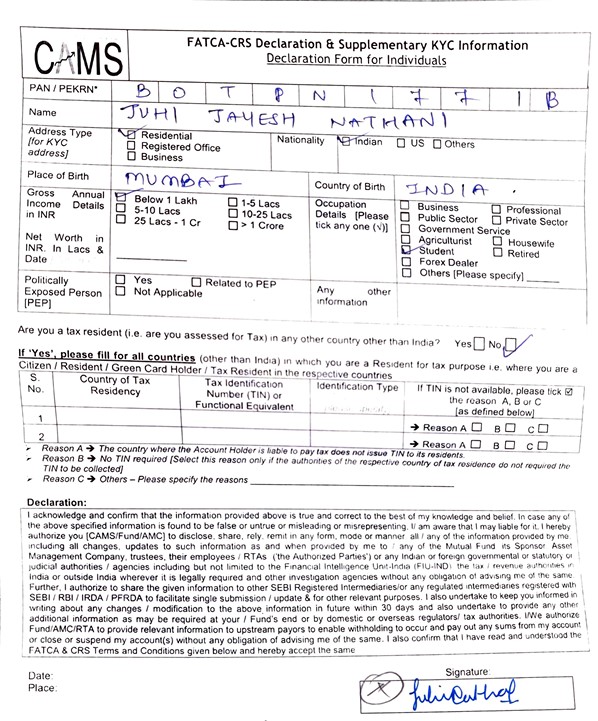 CAMS
FATCA-CRS Declaration & Supplementary KYC Information
Declaration Form for Individuals
PAN / PEKRN* B O T P N 1 7 7 1 B
Name JUHI JAYESH NATHANI
Address Type [for KYC address] Residential
Registered Office
Business
Nationality Indian US Others
Place of Birth MUMBAI Country of Birth INDIA.
Gross Annual Income Details in INR
Below 1 Lakh 1-5 Lacs
5-10 Lacs 10-25 Lacs
25 Lacs - 1 Cr > 1 Crore
Net Worth in INR. In Lacs & Date
Occupation Details [Please tick any one (√)]
Business Professional
Public Sector Private Sector
Government Service
Agriculturist Housewife
Student Retired
Forex Dealer
Others [Please specify]
Politically Exposed Person [PEP]
Yes Related to PEP
Not Applicable
Any other information
Are you a tax resident (i.e. are you assessed for Tax) in any other country other than India? Yes No
If 'Yes', please fill for all countries (other than India) in which you are a Resident for tax purpose i.e. where you are a
Citizen / Resident / Green Card Holder / Tax Resident in the respective countries
S. No. Country of Tax Residency Tax Identification Number (TIN) or Functional Equivalent Identification Type If TIN is not available, please tick ☑ the reason A, B or C [as defined below]
1 → Reason A B C
2 → Reason A B C
Reason A → The country where the Account Holder is liable to pay tax does not issue TIN to its residents.
Reason B → No TIN required [Select this reason only if the authorities of the respective country of tax residence do not required the
TIN to be collected]
Reason C → Others – Please specify the reasons
Declaration:
I acknowledge and confirm that the information provided above is true and correct to the best of my knowledge and belief. In case any of
the above specified information is found to be false or untrue or misleading or misrepresenting, I/ am aware that I may liable for it. I hereby
authorize you [CAMS/Fund/AMC] to disclose, share, rely, remit in any form, mode or manner all / any of the information provided by me,
including all changes, updates to such information as and when provided by me to / any of the Mutual Fund its Sponsor Asset
Management Company, trustees, their employees / RTAs ('the Authorized Parties') or any Indian or foreign governmental or statutory or
judicial authorities / agencies including but not limited to the Financial Intelligence Unit-India (FIU-IND) the tax / revenue authorities in
India or outside India wherever it is legally required and other investigation agencies without any obligation of advising me of the same.
Further, I authorize to share the given information to other SEBI Registered Intermediaries/or any regulated intermediaries registered with
SEBI / RBI / IRDA / PFRDA to facilitate single submission / update & for other relevant purposes. I also undertake to keep you informed in
writing about any changes / modification to the above information in future within 30 days and also undertake to provide any other
additional information as may be required at your / Fund's end or by domestic or overseas regulators/ tax authorities. I/We authorize
Fund/AMC/RTA to provide relevant information to upstream payors to enable withholding to occur and pay out any sums from my account
or close or suspend my account(s) without any obligation of advising me of the same. I also confirm that I have read and understood the
FATCA & CRS Terms and Conditions given below and hereby accept the same
Date:
Place:
Signature: